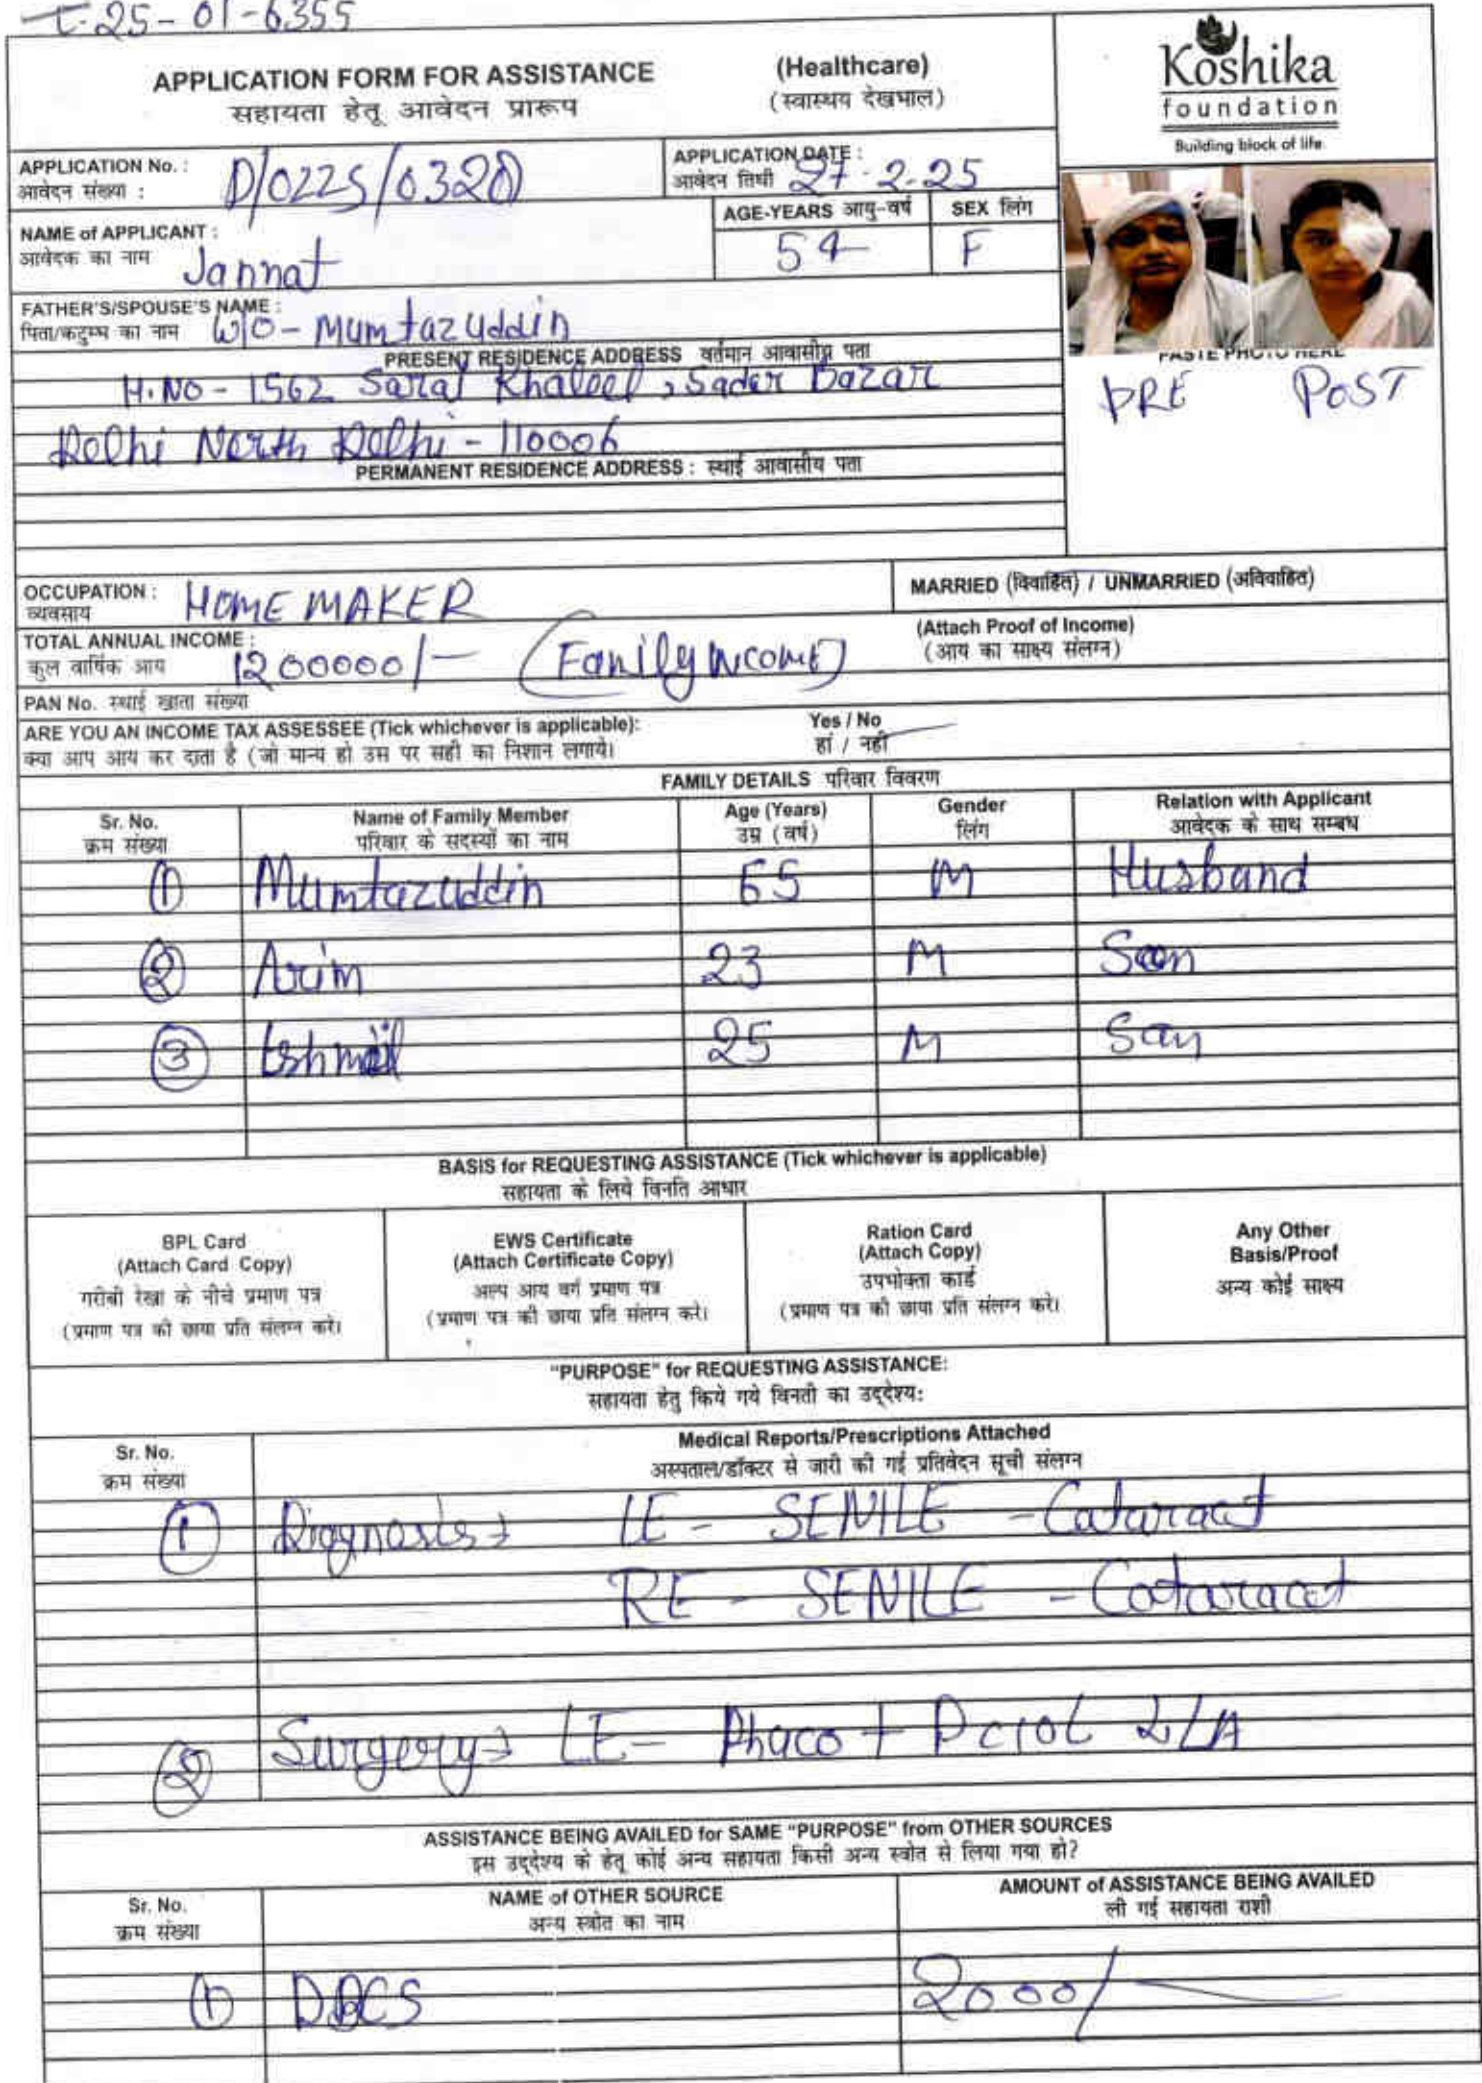 C-25-01-6355
APPLICATION FORM FOR ASSISTANCE (Healthcare)
सहायता हेतू आवेदन प्रारूप (स्वास्थय देखभाल)
Koshika
foundation
Building block of life
APPLICATION No. : D/0225/0320
आवेदन संख्या :
APPLICATION DATE : 27-2-25
आवेदन तिथी
NAME of APPLICANT : Jannat
आवेदक का नाम
AGE-YEARS आयु-वर्ष 54
SEX लिंग F
FATHER'S/SPOUSE'S NAME : W/O - Mumtazuddin
पिता/कटुम्भ का नाम
PASTE PHOTO HERE
PRE POST
PRESENT RESIDENCE ADDRESS वर्तमान आवासीय पता
H.NO - 1562 Sarai Khaleel, Sader Bazar
Delhi North Delhi - 110006
PERMANENT RESIDENCE ADDRESS : स्थाई आवासीय पता
OCCUPATION : HOME MAKER
व्यवसाय
MARRIED (विवाहित) / UNMARRIED (अविवाहित)
TOTAL ANNUAL INCOME : 1200000/- (Family Income)
कुल वार्षिक आय
(Attach Proof of Income)
(आय का साक्ष्य संलग्न)
PAN No. स्थाई खाता संख्या
ARE YOU AN INCOME TAX ASSESSEE (Tick whichever is applicable): Yes / No
क्या आप आय कर दाता है (जो मान्य हो उस पर सही का निशान लगाये। हां / नहीं
FAMILY DETAILS परिवार विवरण
Sr. No. Name of Family Member Age (Years) Gender Relation with Applicant
क्रम संख्या परिवार के सदस्यों का नाम उम्र (वर्ष) लिंग आवेदक के साथ सम्बध
1 Mumtazuddin 65 M Husband
2 Arim 23 M Son
3 Eshmail 25 M Son
BASIS for REQUESTING ASSISTANCE (Tick whichever is applicable)
सहायता के लिये विनति आधार
BPL Card
(Attach Card Copy)
गरीबी रेखा के नीचे प्रमाण पत्र
(प्रमाण पत्र की छाया प्रति संलग्न करे।
EWS Certificate
(Attach Certificate Copy)
अल्प आय वर्ग प्रमाण पत्र
(प्रमाण पत्र की छाया प्रति संलग्न करे।
Ration Card
(Attach Copy)
उपभोक्ता कार्ड
(प्रमाण पत्र की छाया प्रति संलग्न करे।
Any Other
Basis/Proof
अन्य कोई साक्ष्य
"PURPOSE" for REQUESTING ASSISTANCE:
सहायता हेतु किये गये विनती का उद्देश्य:
Sr. No. Medical Reports/Prescriptions Attached
क्रम संख्या अस्पताल/डॉक्टर से जारी की गई प्रतिवेदन सूची संलग्न
1 Diagnosis → LE - SENILE - Cataract
RE - SENILE - Cataract
2 Surgery → LE - Phaco + PCIOL
ASSISTANCE BEING AVAILED for SAME "PURPOSE" from OTHER SOURCES
इस उद्देश्य के हेतू कोई अन्य सहायता किसी अन्य स्त्रोत से लिया गया हो?
Sr. No. NAME of OTHER SOURCE AMOUNT of ASSISTANCE BEING AVAILED
क्रम संख्या अन्य स्त्रोत का नाम ली गई सहायता राशी
1 DBCS 2000/-